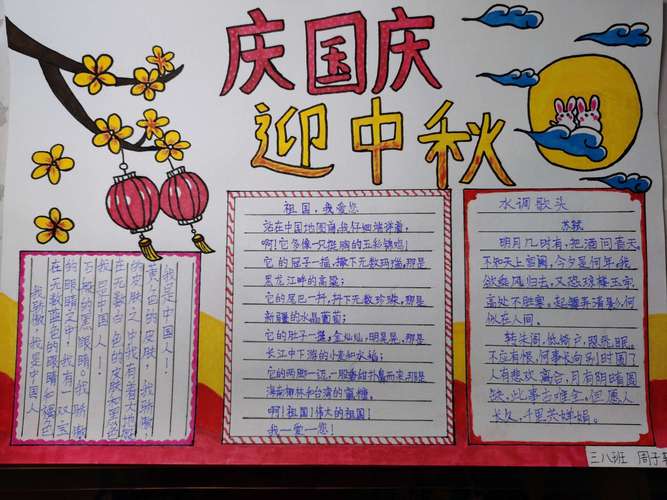 庆国庆
迎中秋
我骄傲，我是中国人
在无数蓝色的眼睛和褐色
的眼睛之中，我有一双宝
石般的黑眼睛。我骄傲
我是中国人！
在无数白色的皮肤和黑色
的皮肤之中我有着大地般
黄色的皮肤，我骄傲
我是中国人！
祖国，我爱您
站在中国地图前，我仔细端详着，
啊！它多像一只挺胸的五彩锦鸡！
它的冠子一摇，撒下无数玛瑙，那是
黑龙江畔的高粱；
它的尾巴一抖，抖下无数珍珠，那是
新疆的水晶葡萄；
它的肚子一露，金灿灿，明晃晃，那是
长江中下游的小麦和水稻；
它的两脚一迈，一股馨甜扑鼻而来，那是
海南椰林和台湾的蔗糖。
啊！祖国！伟大的祖国！
我—爱—您！
水调歌头
苏轼
明月几时有，把酒问青天。
不知天上宫阙，今夕是何年。我
欲乘风归去，又恐琼楼玉宇，
高处不胜寒。起舞弄清影，何
似在人间。
转朱阁，低绮户，照无眠。
不应有恨，何事长向别时圆？
人有悲欢离合，月有阴晴圆
缺，此事古难全。但愿人
长久，千里共婵娟。
三八班 周子